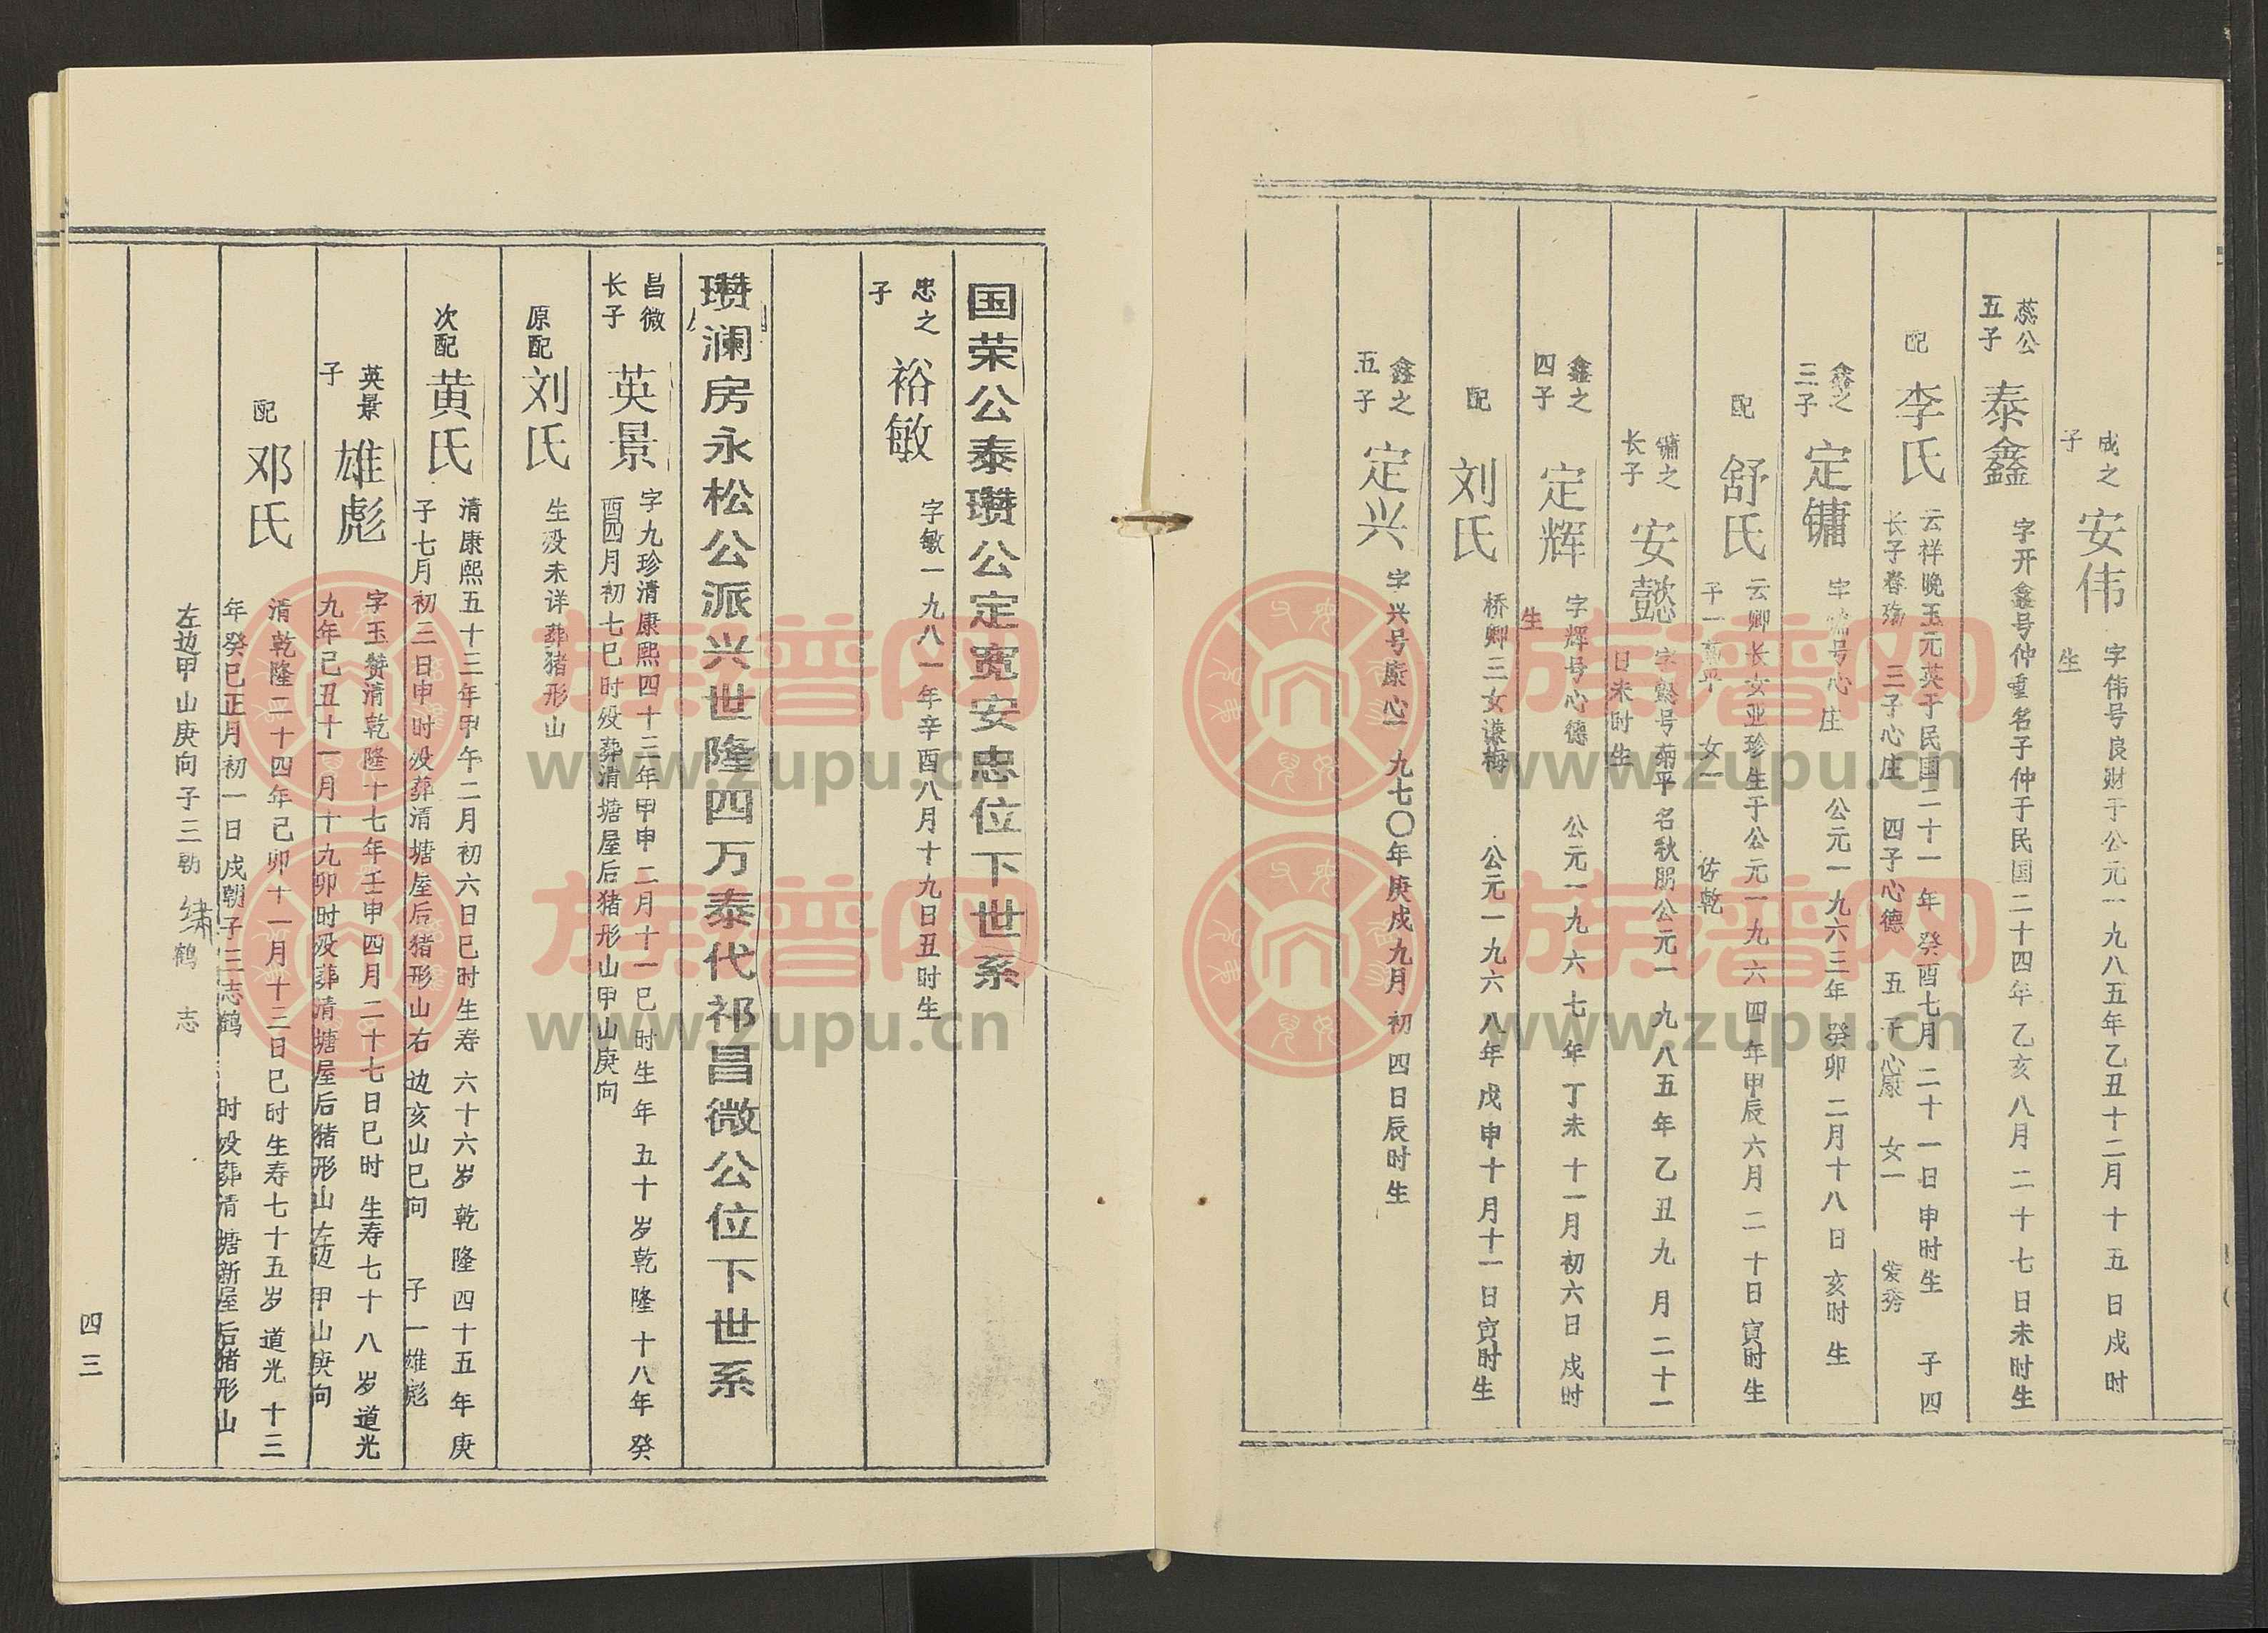 成之
子
安伟
字伟号良财于公元一九八五年乙丑十二月十五日戍时
生
蕊公
五子
泰鑫
字开鑫号仲重名子仲于民国二十四年乙亥八月二十七日未时生
配
李氏
云祥晚玉元英于民国二十一年癸酉七月二十一日申时生 子四
长子春殇 三子心庄 四子心德 五子心康 女一 荣秀
鑫之
三子
定镛
字镛号心庄 公元一九六三年癸卯二月十八日亥时生
配
舒氏
云卿长女亚珍生于公元一九六四年甲辰六月二十日寅时生
子一 女一 佐乾
镛之
长子
安懿
字懿号菊平名秋朋公元一九八五年乙丑九月二十一
日未时生
鑫之
四子
定辉
字辉号心德 公元一九六七年丁未十一月初六日戍时
生
配
刘氏
桥卿三女谦梅 公元一九六八年戊申十月十一日寅时生
鑫之
五子
定兴
字兴号康心一九七〇年庚戍九月初四日辰时生
国荣公泰瓒公定宽安忠位下世系
忠之
子
裕敏
字敏一九八一年辛酉八月十九日丑时生
瓒澜房永松公派兴世隆四万泰代祁昌微公位下世系
昌微
长子
英景
字九珍清康熙四十三年甲申二月十一巳时生年五十岁乾隆十八年癸
酉四月初七巳时殁葬清塘屋后猪形山甲山庚向
原配
刘氏
生殁未详葬猪形山
次配
黄氏
清康熙五十三年甲午二月初六日巳时生寿六十六岁乾隆四十五年庚
子七月初三日申时殁葬清塘屋后猪形山右边亥山巳向 子一雄彪
英景
子
雄彪
字玉赞清乾隆十七年壬申四月二十七日巳时生寿七十八岁道光
九年己丑十一月十九卯时殁葬清塘屋后猪形山左边甲山庚向
配
邓氏
清乾隆二十四年己卯十一月十三日巳时生寿七十五岁道光十三
年癸巳正月初一日戍朝子三志鹤 时殁葬清塘新屋后猪形山
左边甲山庚向子三勅 绣鹤 志
四三
族谱网
www.zupu.cn
族谱网
www.zupu.cn
族谱网
www.zupu.cn
族谱网
www.zupu.cn